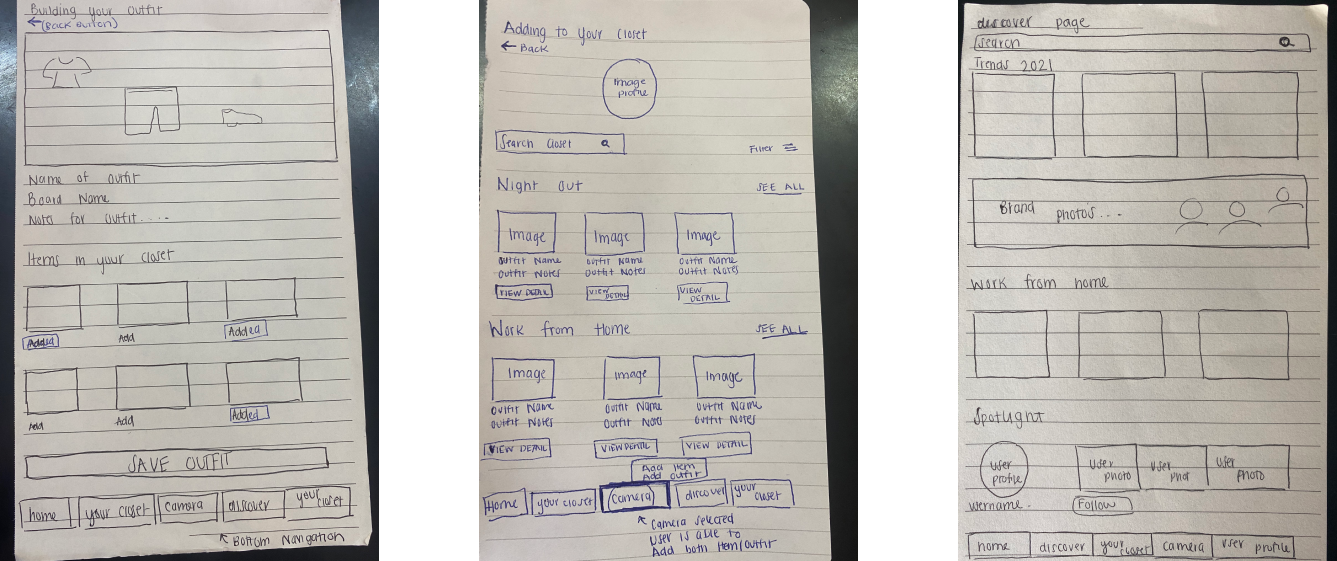 Building your outfit
(Back button)
Name of outfit
Board Name
Notes for outfit....
Items in your closet
Added Add Added
Add Add Added
SAVE OUTFIT
home your closet camera discover your closet
Bottom Navigation
Adding to your closet
Back
Image profile
Search closet
Filter
Night out SEE ALL
Image Image Image
outfit Name outfit Name outfit Name
outfit Notes outfit Notes outfit Notes
VIEW DETAIL VIEW DETAIL VIEW DETAIL
Work from Home SEE ALL
Image Image Image
outfit Name outfit Name outfit Name
outfit Notes outfit Notes outfit Notes
VIEW DETAIL VIEW DETAIL VIEW DETAIL
Add Item
Add outfit
Home your closet camera discover your closet
Camera selected
User is able to
Add both Item/outfit
discover page
search
Trends 2021
Brand photos...
Work from home
Spotlight
User profile User photo User phot User photo
username. Follow
home discover your closet camera user profile